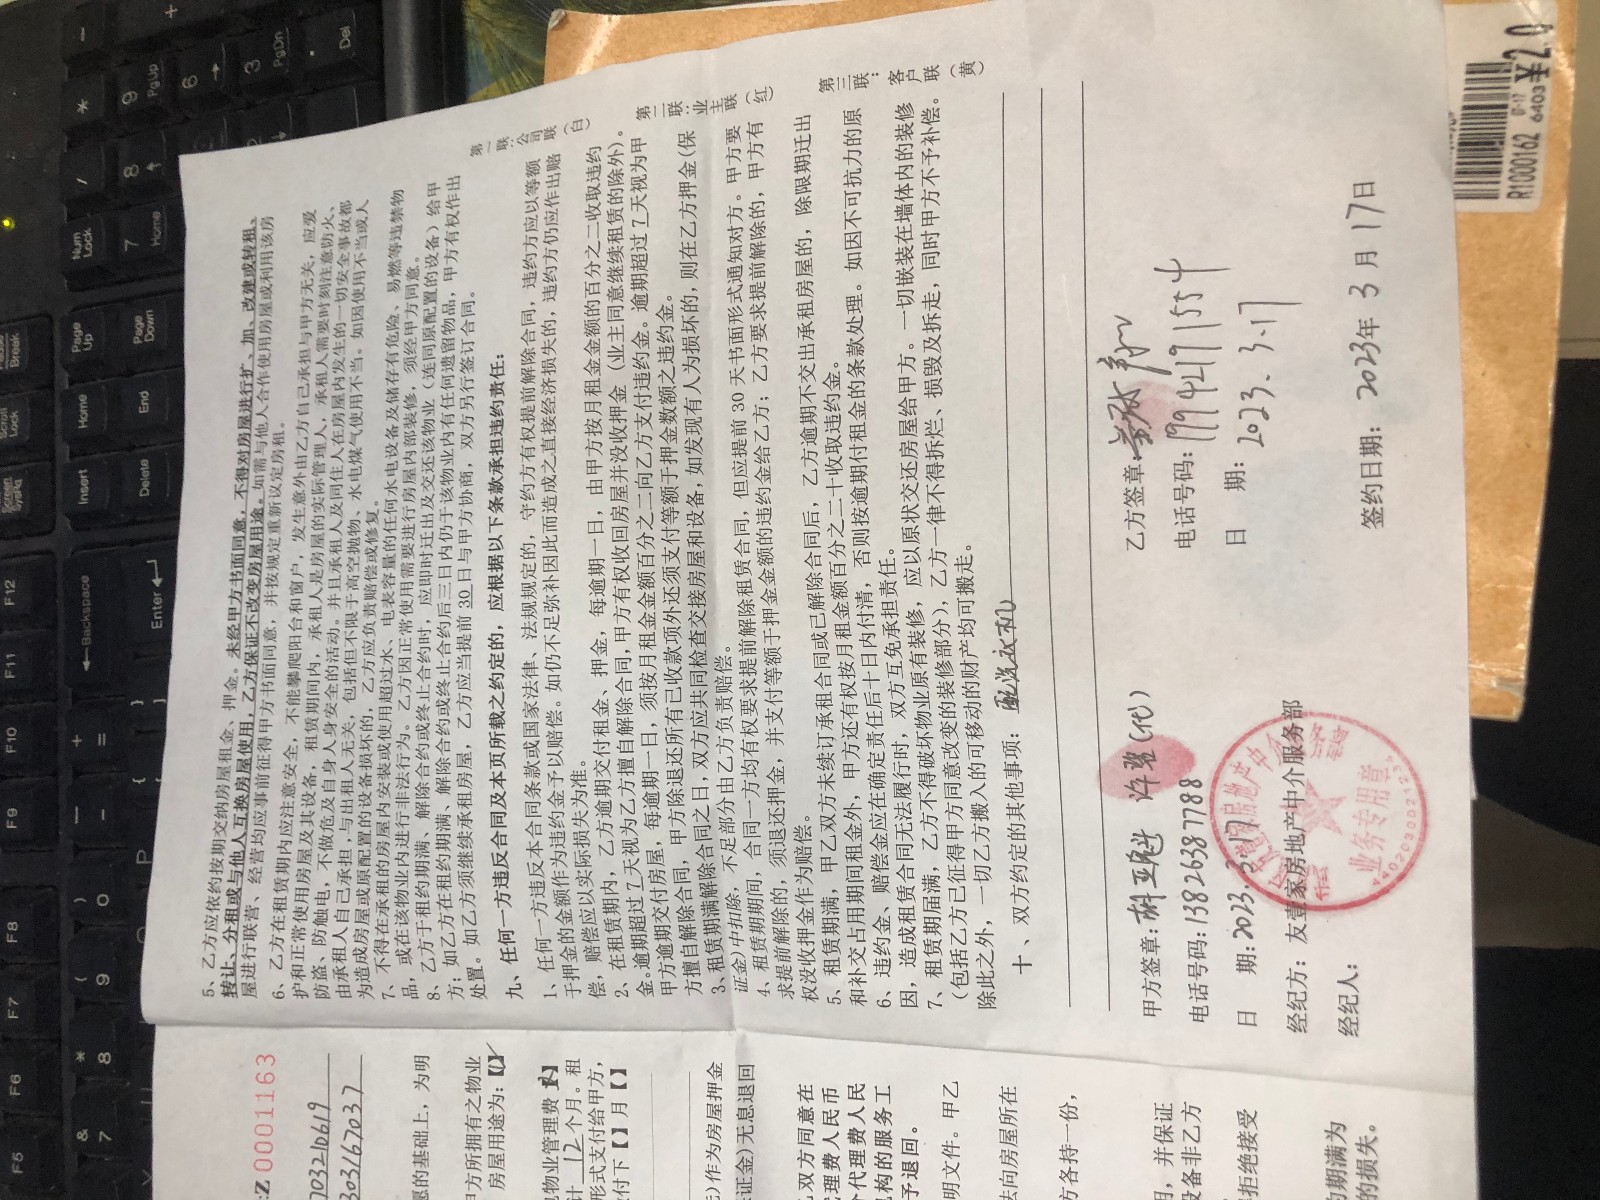 5、乙方应依约按期交纳房屋租金、押金。未经甲方书面同意，不得对房屋进行扩、加、改建或转租、
转让、分租或与他人互换房屋使用，乙方保证不改变房屋用途。如需与他人合作使用房屋或利用该房
屋进行联营、经营均应事前征得甲方书面同意，并按规定重新议定房租。
6、乙方在租赁期内应注意安全，不能攀爬阳台和窗户，发生意外由乙方自己承担与甲方无关，应爱
护和正常使用房屋及其设备，租赁期间内，承租人是房屋的实际管理人，承租人需要时刻注意防火、
防盗、防触电，不做危及自身人身安全的活动。并且承租人及同住人在房屋内发生的一切安全事故都
由承租人自己承担，与出租人无关，包括但不限于高空抛物、水电煤气使用不当。如因使用不当或人
为造成房屋或原配置的设备损坏的，乙方应负责赔偿或修复。
7、不得在承租的房屋内安装或使用超过水、电表容量的任何水电设备及储存有危险、易燃等违禁物
品，或在该物业内进行非法行为。乙方因正常使用需要进行房屋内部装修，须经甲方同意。
8、乙方于租约期满、解除合约或终止合约时，应即时迁出及交还该物业（连同原配置的设备）给甲
方；如乙方在租约期满、解除合约或终止合约后三日内仍于该物业内有任何遗留物品，甲方有权作出
处置。如乙方须继续承租房屋，乙方应当提前30日与甲方协商，双方另行签订合同。
九、任何一方违反合同及本页所载之约定的，应根据以下条款承担违约责任：
1、任何一方违反本合同条款或国家法律、法规规定的，守约方有权提前解除合同，违约方应以等额
于押金的金额作为违约金予以赔偿。如仍不足弥补因此而造成之直接经济损失的，违约方仍应作出赔
偿，赔偿应以实际损失为准。
2、在租赁期内，乙方逾期交付租金、押金，每逾期一日，由甲方按月租金金额的百分之二收取违约
金。逾期超过7天视为乙方擅自解除合同，甲方有权收回房屋并没收押金（业主同意继续租赁的除外）。
甲方逾期交付房屋，每逾期一日，须按月租金金额百分之二向乙方支付违约金。逾期超过7天视为甲
方擅自解除合同，甲方除退还所有已收款项外还须支付等额于押金数额之违约金。
3、租赁期满解除合同之日，双方应共同检查交接房屋和设备，如发现有人为损坏的，则在乙方押金(保
证金)中扣除，不足部分由乙方负责赔偿。
4、租赁期期间，合同一方均有权要求提前解除租赁合同，但应提前30天书面形式通知对方。甲方要
求提前解除的，须退还押金，并支付等额于押金金额的违约金给乙方；乙方要求提前解除的，甲方有
权没收押金作为赔偿。
5、租赁期满，甲乙双方未续订承租合同或已解除合同后，乙方逾期不交出承租房屋的，除限期迁出
和补交占用期间租金外，甲方还有权按月租金额百分之二十收取违约金。
6、违约金、赔偿金应在确定责任后十日内付清，否则按逾期付租金的条款处理。如因不可抗力的原
因，造成租赁合同无法履行时，双方互免承担责任。
7、租赁期届满，乙方不得破坏物业原有装修，应以原状交还房屋给甲方。一切嵌装在墙体内的装修
（包括乙方已征得甲方同意改变的装修部分），乙方一律不得拆烂、损毁及拆走，同时甲方不予补偿。
除此之外，一切乙方搬入的可移动的财产均可搬走。
十、双方约定的其他事项：
第一联：公司联（白）
第二联：业主联（红）
第三联：客户联（黄）
甲方签章： (代)
电话号码：13826587788
日 期：2023.3.17
经纪方：友壹家房地产中介服务部
经纪人：
乙方签章：
电话号码：19942171554
日 期：2023.3.17
签约日期：2023年3月17日
业务专用章
Z0001163
愿的基础上，为明
房屋用途为：
物业管理费
计12个月。租
形式支付给甲方，
付下【】月【】
)作为房屋押金
证金)无息退回
双方同意在
理费人民币
代理费人民
机构的服务工
予退回。
明文件。甲乙
法向房屋所在
方各持一份，
用，并保证
设备非乙方
拒绝接受
期满为
的损失。
R1000162
¥2.0
Num Lock
Home
PgUp
PgDn
Del
Page Up
Page Down
End
Insert
Delete
Backspace
Enter
F5
F6
F7
F8
F9
F10
F11
F12